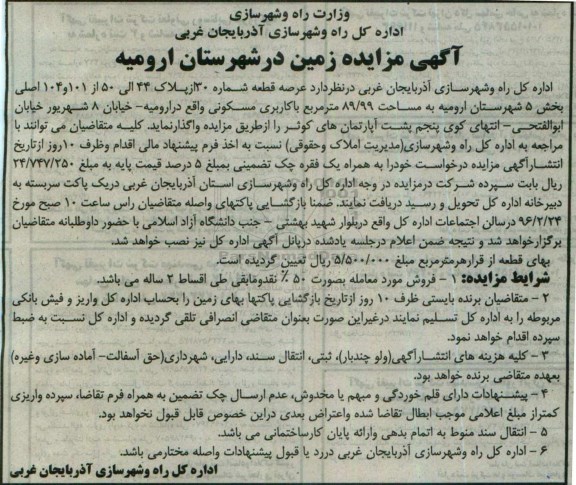 وزارت راه وشهرسازی
اداره کل راه وشهرسازی آذربایجان غربی
آگهی مزایده زمین درشهرستان ارومیه
اداره کل راه وشهرسازی آذربایجان غربی درنظردارد عرصه قطعه شماره ۳۰ازپلاک ۴۴ الی ۵۰ از ۱۰۱و۱۰۴ اصلی
بخش ۵ شهرستان ارومیه به مساحت ۸۹/۹۹ مترمربع باکاربری مسکونی واقع درارومیه- خیابان ۸ شهریور خیابان
ابوالفتحی- انتهای کوی پنجم پشت آپارتمان های کوثر را ازطریق مزایده واگذارنماید. کلیه متقاضیان می توانند با
مراجعه به اداره کل راه وشهرسازی(مدیریت املاک وحقوقی) نسبت به اخذ فرم پیشنهاد مالی اقدام وظرف ۱۰روز ازتاریخ
انتشارآگهی مزایده درخواست خودرا به همراه یک فقره چک تضمینی بمبلغ ۵ درصد قیمت پایه به مبلغ ۲۴/۷۴۷/۲۵۰
ریال بابت سپرده شرکت درمزایده در وجه اداره کل راه وشهرسازی استان آذربایجان غربی دریک پاکت سربسته به
دبیرخانه اداره کل تحویل و رسید دریافت نمایند. ضمنا بازگشایی پاکتهای واصله متقاضیان راس ساعت ۱۰ صبح مورخ
۹۶/۲/۲۴ درسالن اجتماعات اداره کل واقع دربلوار شهید بهشتی - جنب دانشگاه آزاد اسلامی با حضور داوطلبانه متقاضیان
برگزارخواهد شد و نتیجه ضمن اعلام درجلسه یادشده درپانل آگهی اداره کل نیز نصب خواهد شد.
بهای قطعه از قرارهرمترمربع مبلغ ۵/۵۰۰/۰۰۰ ریال تعیین گردیده است.
شرایط مزایده: ۱ - فروش مورد معامله بصورت ۵۰ ٪ نقدومابقی طی اقساط ۲ ساله می باشد.
۲ - متقاضیان برنده بایستی ظرف ۱۰ روز ازتاریخ بازگشایی پاکتها بهای زمین را بحساب اداره کل واریز و فیش بانکی
مربوطه را به اداره کل تسلیم نمایند درغیراین صورت بعنوان متقاضی انصرافی تلقی گردیده و اداره کل نسبت به ضبط
سپرده اقدام خواهد نمود.
۳ - کلیه هزینه های انتشارآگهی(ولو چندبار)، ثبتی، انتقال سند، دارایی، شهرداری(حق آسفالت- آماده سازی وغیره)
بعهده متقاضی برنده خواهد بود.
۴ - پیشنهادات دارای قلم خوردگی و مبهم یا مخدوش، عدم ارسال چک تضمین به همراه فرم تقاضا، سپرده واریزی
کمتراز مبلغ اعلامی موجب ابطال تقاضا شده واعتراض بعدی دراین خصوص قابل قبول نخواهد بود.
۵ - انتقال سند منوط به اتمام بدهی وارائه پایان کارساختمانی می باشد.
۶ - اداره کل راه وشهرسازی آذربایجان غربی دررد یا قبول پیشنهادات واصله مختارمی باشد.
اداره کل راه وشهرسازی آذربایجان غربی